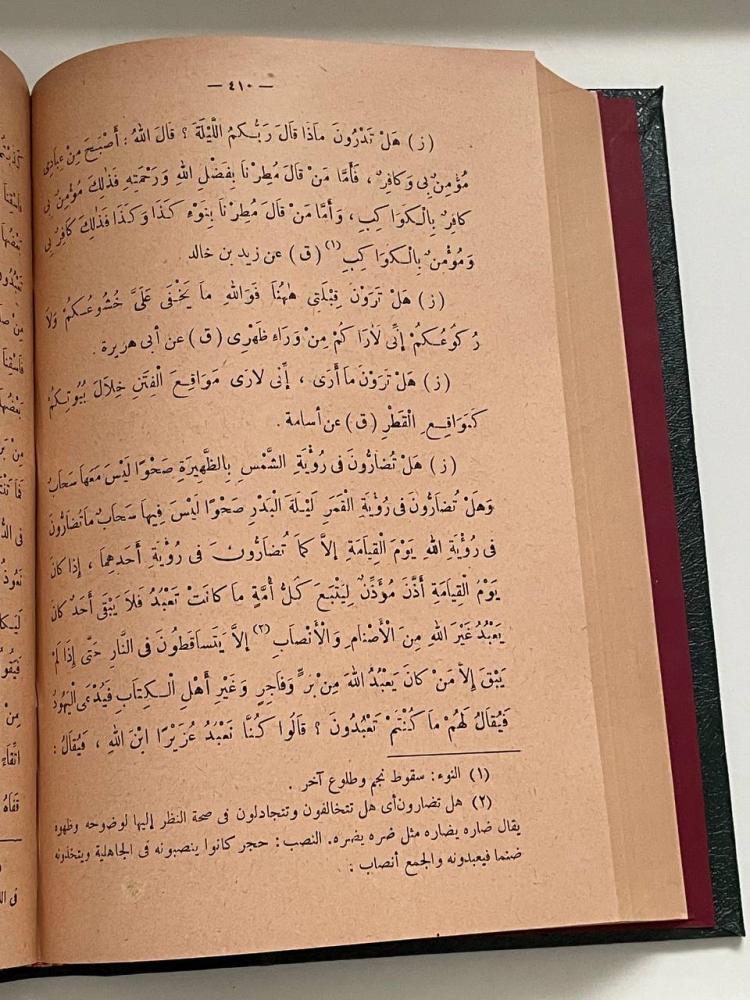 — ٤١٠ —
(ز) هَلْ تَدْرُونَ مَاذَا قَالَ رَبُّكُمُ اللَّيْلَةَ ؟ قَالَ اللهُ : أَصْبَحَ مِنْ عِبَادِى
مُؤْمِنٌ بِى وَكَافِرٌ ، فَأَمَّا مَنْ قَالَ مُطِرْنَا بِفَضْلِ اللهِ وَرَحْمَتِهِ فَذٰلِكَ مُؤْمِنٌ بِى
كَافِرٌ بِالْكَوَاكِبِ ، وَأَمَّا مَنْ قَالَ مُطِرْنَا بِنَوْءِ كَذَا وَكَذَا فَذٰلِكَ كَافِرٌ بِى
وَمُؤْمِنٌ بِالْكَوَاكِبِ (١) (ق) عن زيد بن خالد
(ز) هَلْ تَرَوْنَ قِبْلَتِى هٰهُنَا فَوَاللهِ مَا يَخْفَى عَلَىَّ خُشُوعُكُمْ وَلَا
رُكُوعُكُمْ إِنِّى لَأَرَاكُمْ مِنْ وَرَاءِ ظَهْرِى (ق) عن أبى هريرة .
(ز) هَلْ تَرَوْنَ مَا أَرَى ، إِنِّى لَارَى مَوَاقِعَ الْفِتَنِ خِلَالَ بُيُوتِكُمْ
كَمَوَاقِعِ الْقَطْرِ (ق) عن أسامة .
(ز) هَلْ تُضَارُّونَ فِى رُؤْيَةِ الشَّمْسِ بِالظَّهِيرَةِ صَحْوًا لَيْسَ مَعَهَا سَحَابٌ
وَهَلْ تُضَارُّونَ فِى رُؤْيَةِ الْقَمَرِ لَيْلَةَ الْبَدْرِ صَحْوًا لَيْسَ فِيهَا سَحَابٌ مَا تُضَارُّونَ
فِى رُؤْيَةِ اللهِ يَوْمَ الْقِيَامَةِ إِلَّا كَمَا تُضَارُّونَ فِى رُؤْيَةِ أَحَدِهِمَا ، إِذَا كَانَ
يَوْمُ الْقِيَامَةِ أَذَّنَ مُؤَذِّنٌ لِيَتْبَعَ كُلُّ أُمَّةٍ مَا كَانَتْ تَعْبُدُ فَلَا يَبْقَى أَحَدٌ كَانَ
يَعْبُدُ غَيْرَ اللهِ مِنَ الْأَصْنَامِ وَالْأَنْصَابِ (٢) إِلَّا يَتَسَاقَطُونَ فِى النَّارِ حَتَّى إِذَا لَمْ
يَبْقَ إِلَّا مَنْ كَانَ يَعْبُدُ اللهَ مِنْ بَرٍّ وَفَاجِرٍ وَغَيْرِ أَهْلِ الْكِتَابِ فَيُدْعَى الْيَهُودُ
فَيُقَالُ لَهُمْ مَا كُنْتُمْ تَعْبُدُونَ ؟ قَالُوا كُنَّا نَعْبُدُ عُزَيْرًا ابْنَ اللهِ ، فَيُقَالُ :
(١) النوء : سقوط نجم وطلوع آخر .
(٢) هل تضارون أى هل تتخالفون وتتجادلون فى صحة النظر إليها لوضوحه وظهوره
يقال ضاره يضاره مثل ضره يضره. النصب : حجر كانوا ينصبونه فى الجاهلية ويتخذونه
صنما فيعبدونه والجمع أنصاب :